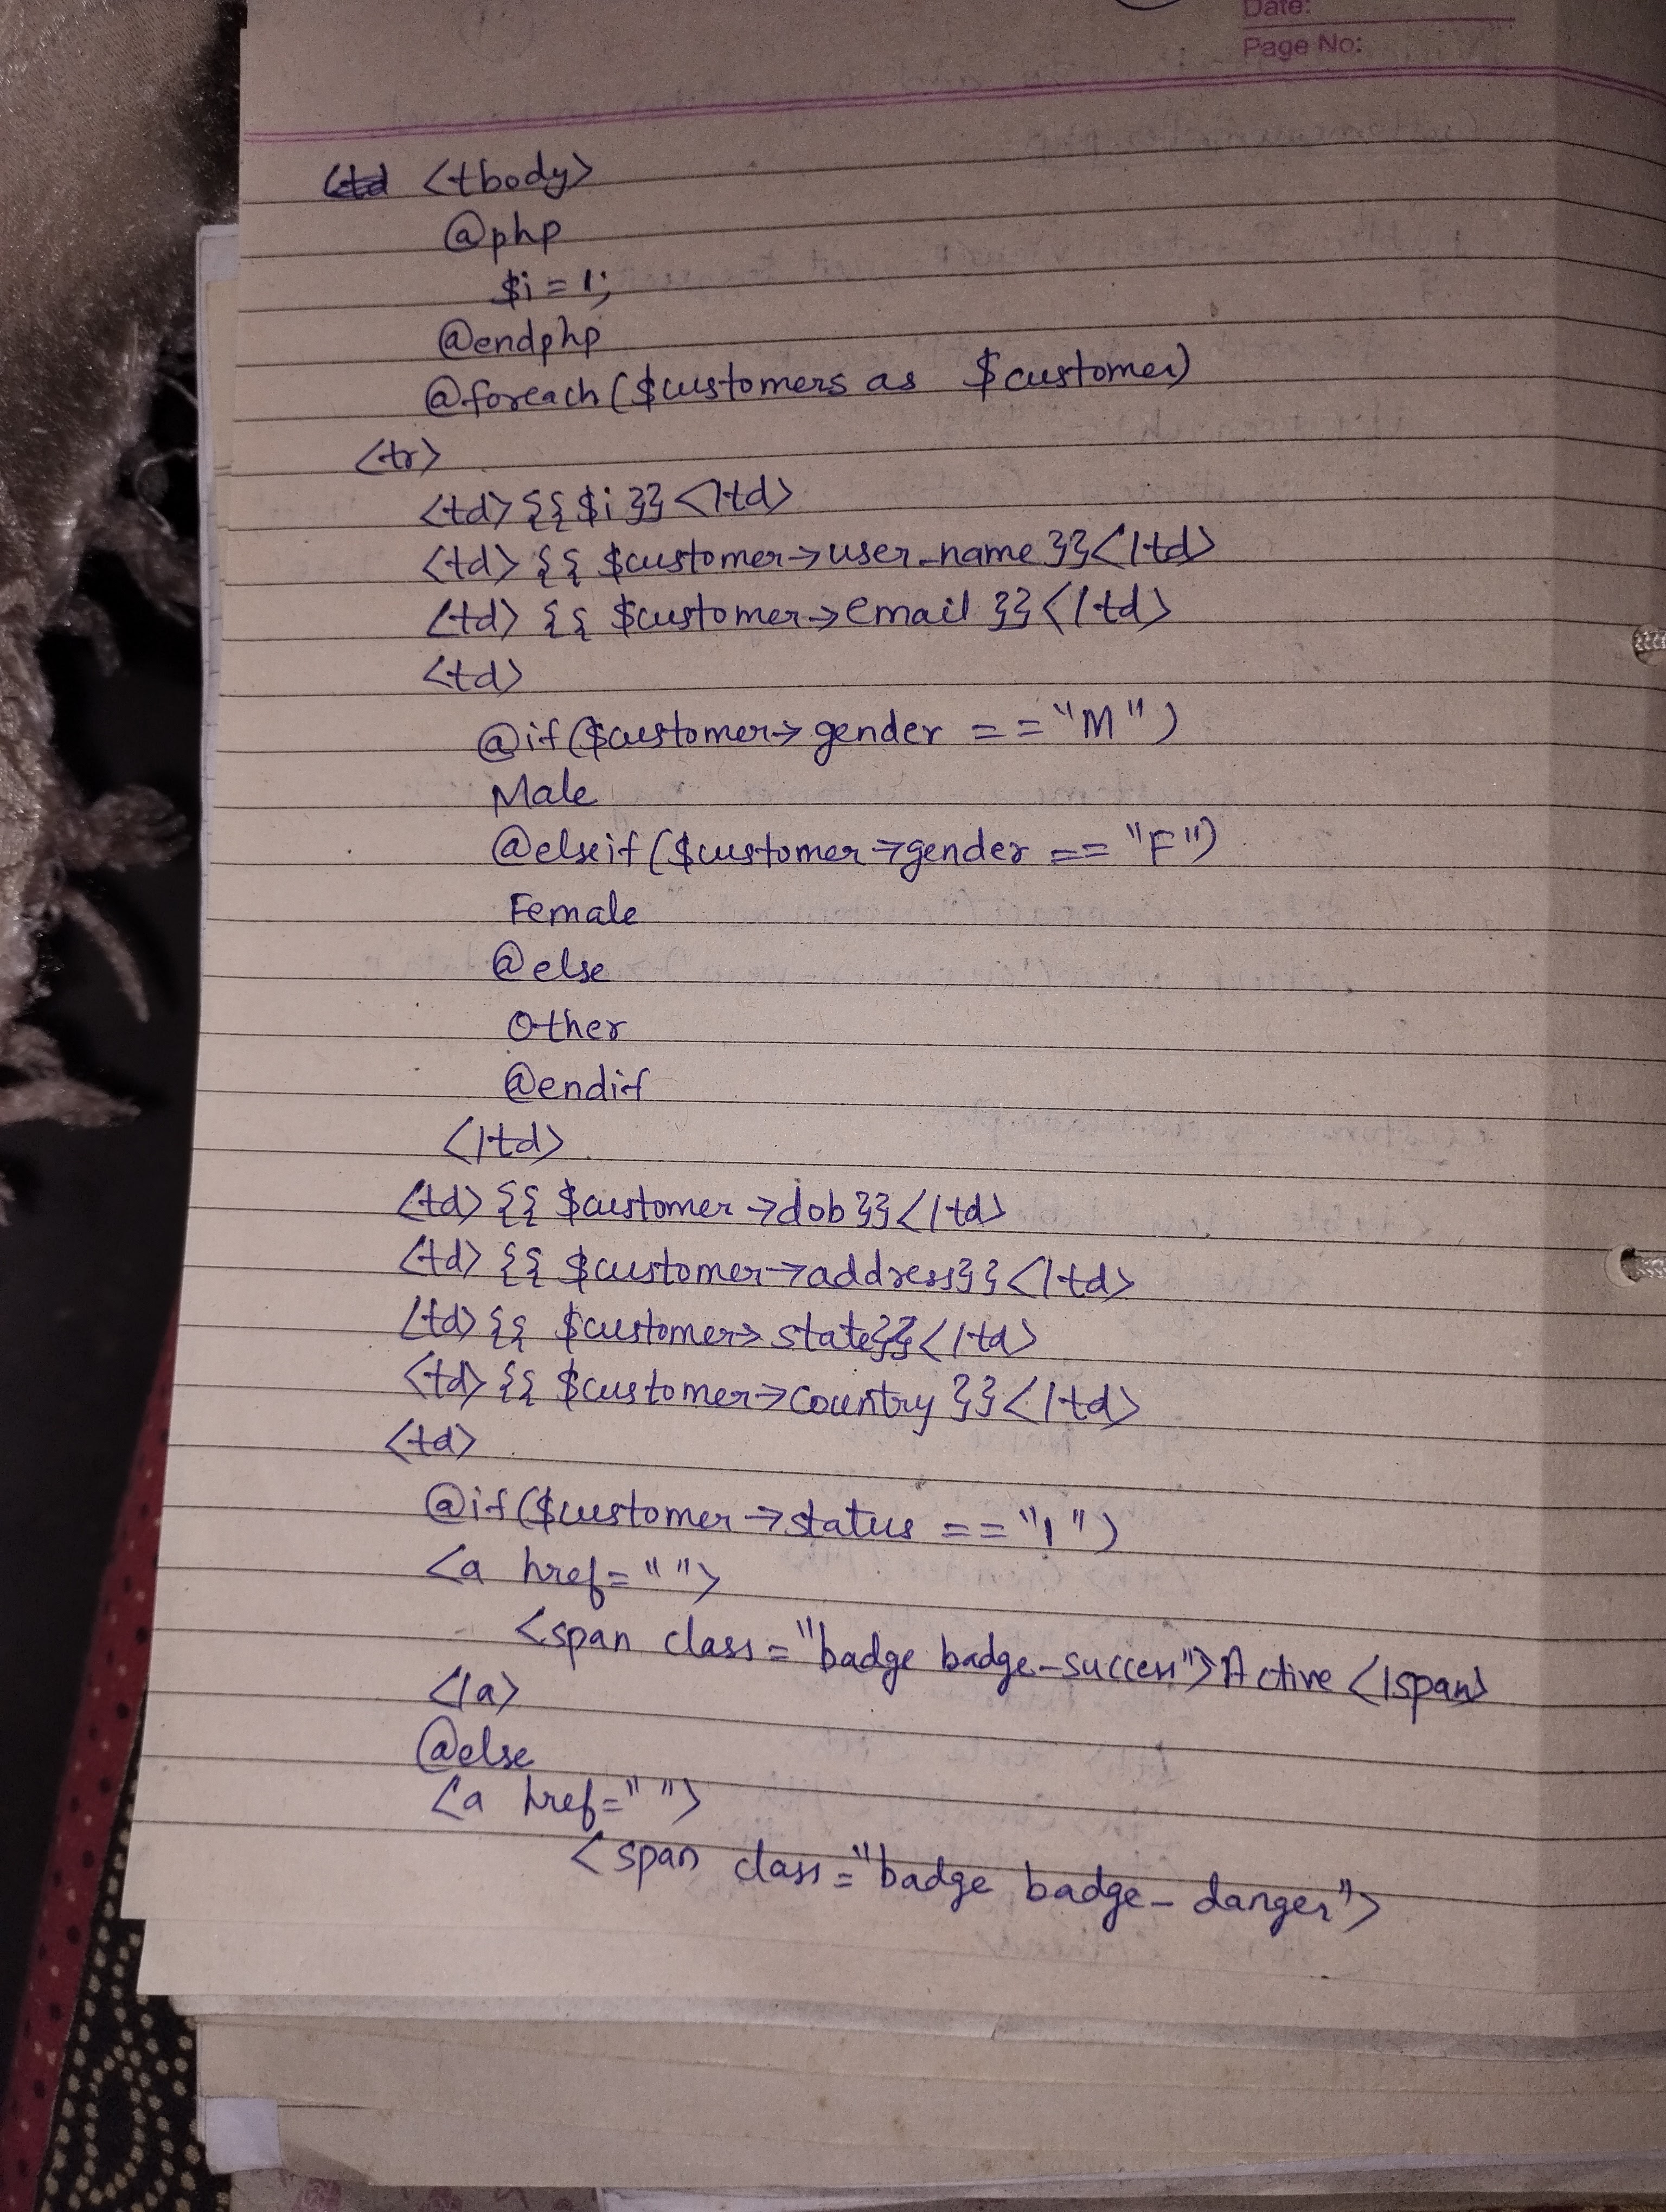 Date:
Page No:
<tbody>
@php
$i = 1;
@endphp
@foreach ($customers as $customer)
<tr>
<td>{{$i}}</td>
<td>{{ $customer->user_name }}</td>
<td>{{ $customer->email }}</td>
<td>
@if($customer->gender == "M")
Male
@elseif($customer->gender == "F")
Female
@else
Other
@endif
</td>
<td>{{ $customer->dob}}</td>
<td>{{ $customer->address}}</td>
<td>{{ $customer->state}}</td>
<td>{{ $customer->country }}</td>
<td>
@if($customer->status == "1")
<a href="">
<span class="badge badge-success">Active</span>
</a>
@else
<a href="">
<span class="badge badge-danger">